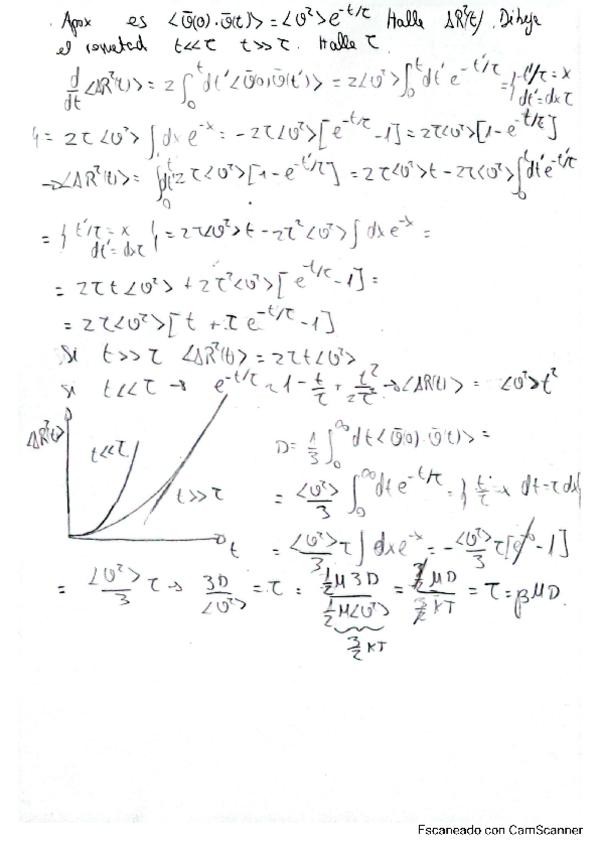 Aprox es <v̄(0)·v̄(t)> = <v²>e^{-t/τ} Halle ΔR²(t). Dibuje
el resultad t<<τ t>>τ. Halle τ.
d/dt <ΔR²(t)> = 2∫₀ᵗ dt' <v̄(0)v̄(t')> = 2<v²>∫₀ᵗ dt' e^{-t'/τ} = { t'/τ = x dt' = dxτ
} = 2τ<v²>∫dx e^{-x} = -2τ<v²>[e^{-t/τ} - 1] = 2τ<v²>[1 - e^{-t/τ}]
→ <ΔR²(t)> = ∫₀ᵗ dt' 2τ<v²>[1 - e^{-t'/τ}] = 2τ<v²>t - 2τ<v²>∫₀ᵗ dt' e^{-t'/τ}
= { t'/τ = x dt' = dxτ } = 2τ<v²>t - 2τ²<v²>∫dx e^{-x} =
= 2τt<v²> + 2τ²<v²>[e^{-t/τ} - 1] =
= 2τ<v²>[t + τ e^{-t/τ} - 1]
Si t>>τ <ΔR²(t)> = 2τt<v²>
Si t<<τ → e^{-t/τ} ≈ 1 - t/τ + t²/2τ² → <ΔR(t)> = <v²>t²
ΔR²(t)
t<<τ
t>>τ
t
D = 1/3 ∫₀^∞ dt <v̄(0)·v̄(t)> =
= <v²>/3 ∫₀^∞ dt e^{-t/τ} = { t/τ = x dt = τdx }
= <v²>/3 τ ∫dx e^{-x} = -<v²>/3 τ[e^{-∞} - 1]
= <v²>/3 τ → 3D/<v²> = τ = ½M3D / ½M<v²> = 3/2 MD / 3/2 KT = τ = βMD
3/2 KT
Escaneado con CamScanner